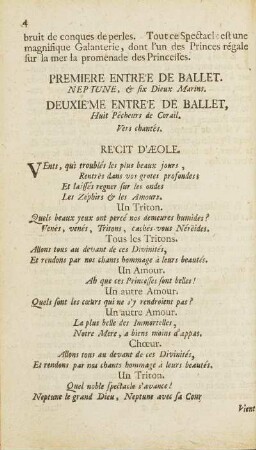 4
bruit de conques de perles. Tout ce Spectacle est une
magnifique Galanterie, dont l'un des Princes régale
sur la mer la promenade des Princesses.
PREMIERE ENTRE'E DE BALLET.
NEPTUNE, & six Dieux Marins.
DEUXIE'ME ENTRE'E DE BALLET,
Huit Pêcheurs de Corail.
Vers chantés.
RE'CIT D'ÆOLE.
VEnts, qui troublés les plus beaux jours,
Rentrés dans vos grotes profondes;
Et laissés regner sur les ondes
Les Zéphirs & les Amours.
Un Triton.
Quels beaux yeux ont percé nos demeures humides?
Venés, venés, Tritons, cachés vous Néréides.
Tous les Tritons.
Allons tous au devant de ces Divinités,
Et rendons par nos chants hommage à leurs beautés.
Un Amour.
Ah que ces Princesses sont belles!
Un autre Amour.
Quels sont les cœurs qui ne s'y rendroient pas?
Un autre Amour.
La plus belle des Immortelles,
Notre Mere, a biens moins d'appas.
Chœur.
Allons tous au devant de ces Divinités,
Et rendons par nos chants hommage à leurs beautés.
Un Triton.
Quel noble spectacle s'avance!
Neptune le grand Dieu, Neptune avec sa Cour
Vient